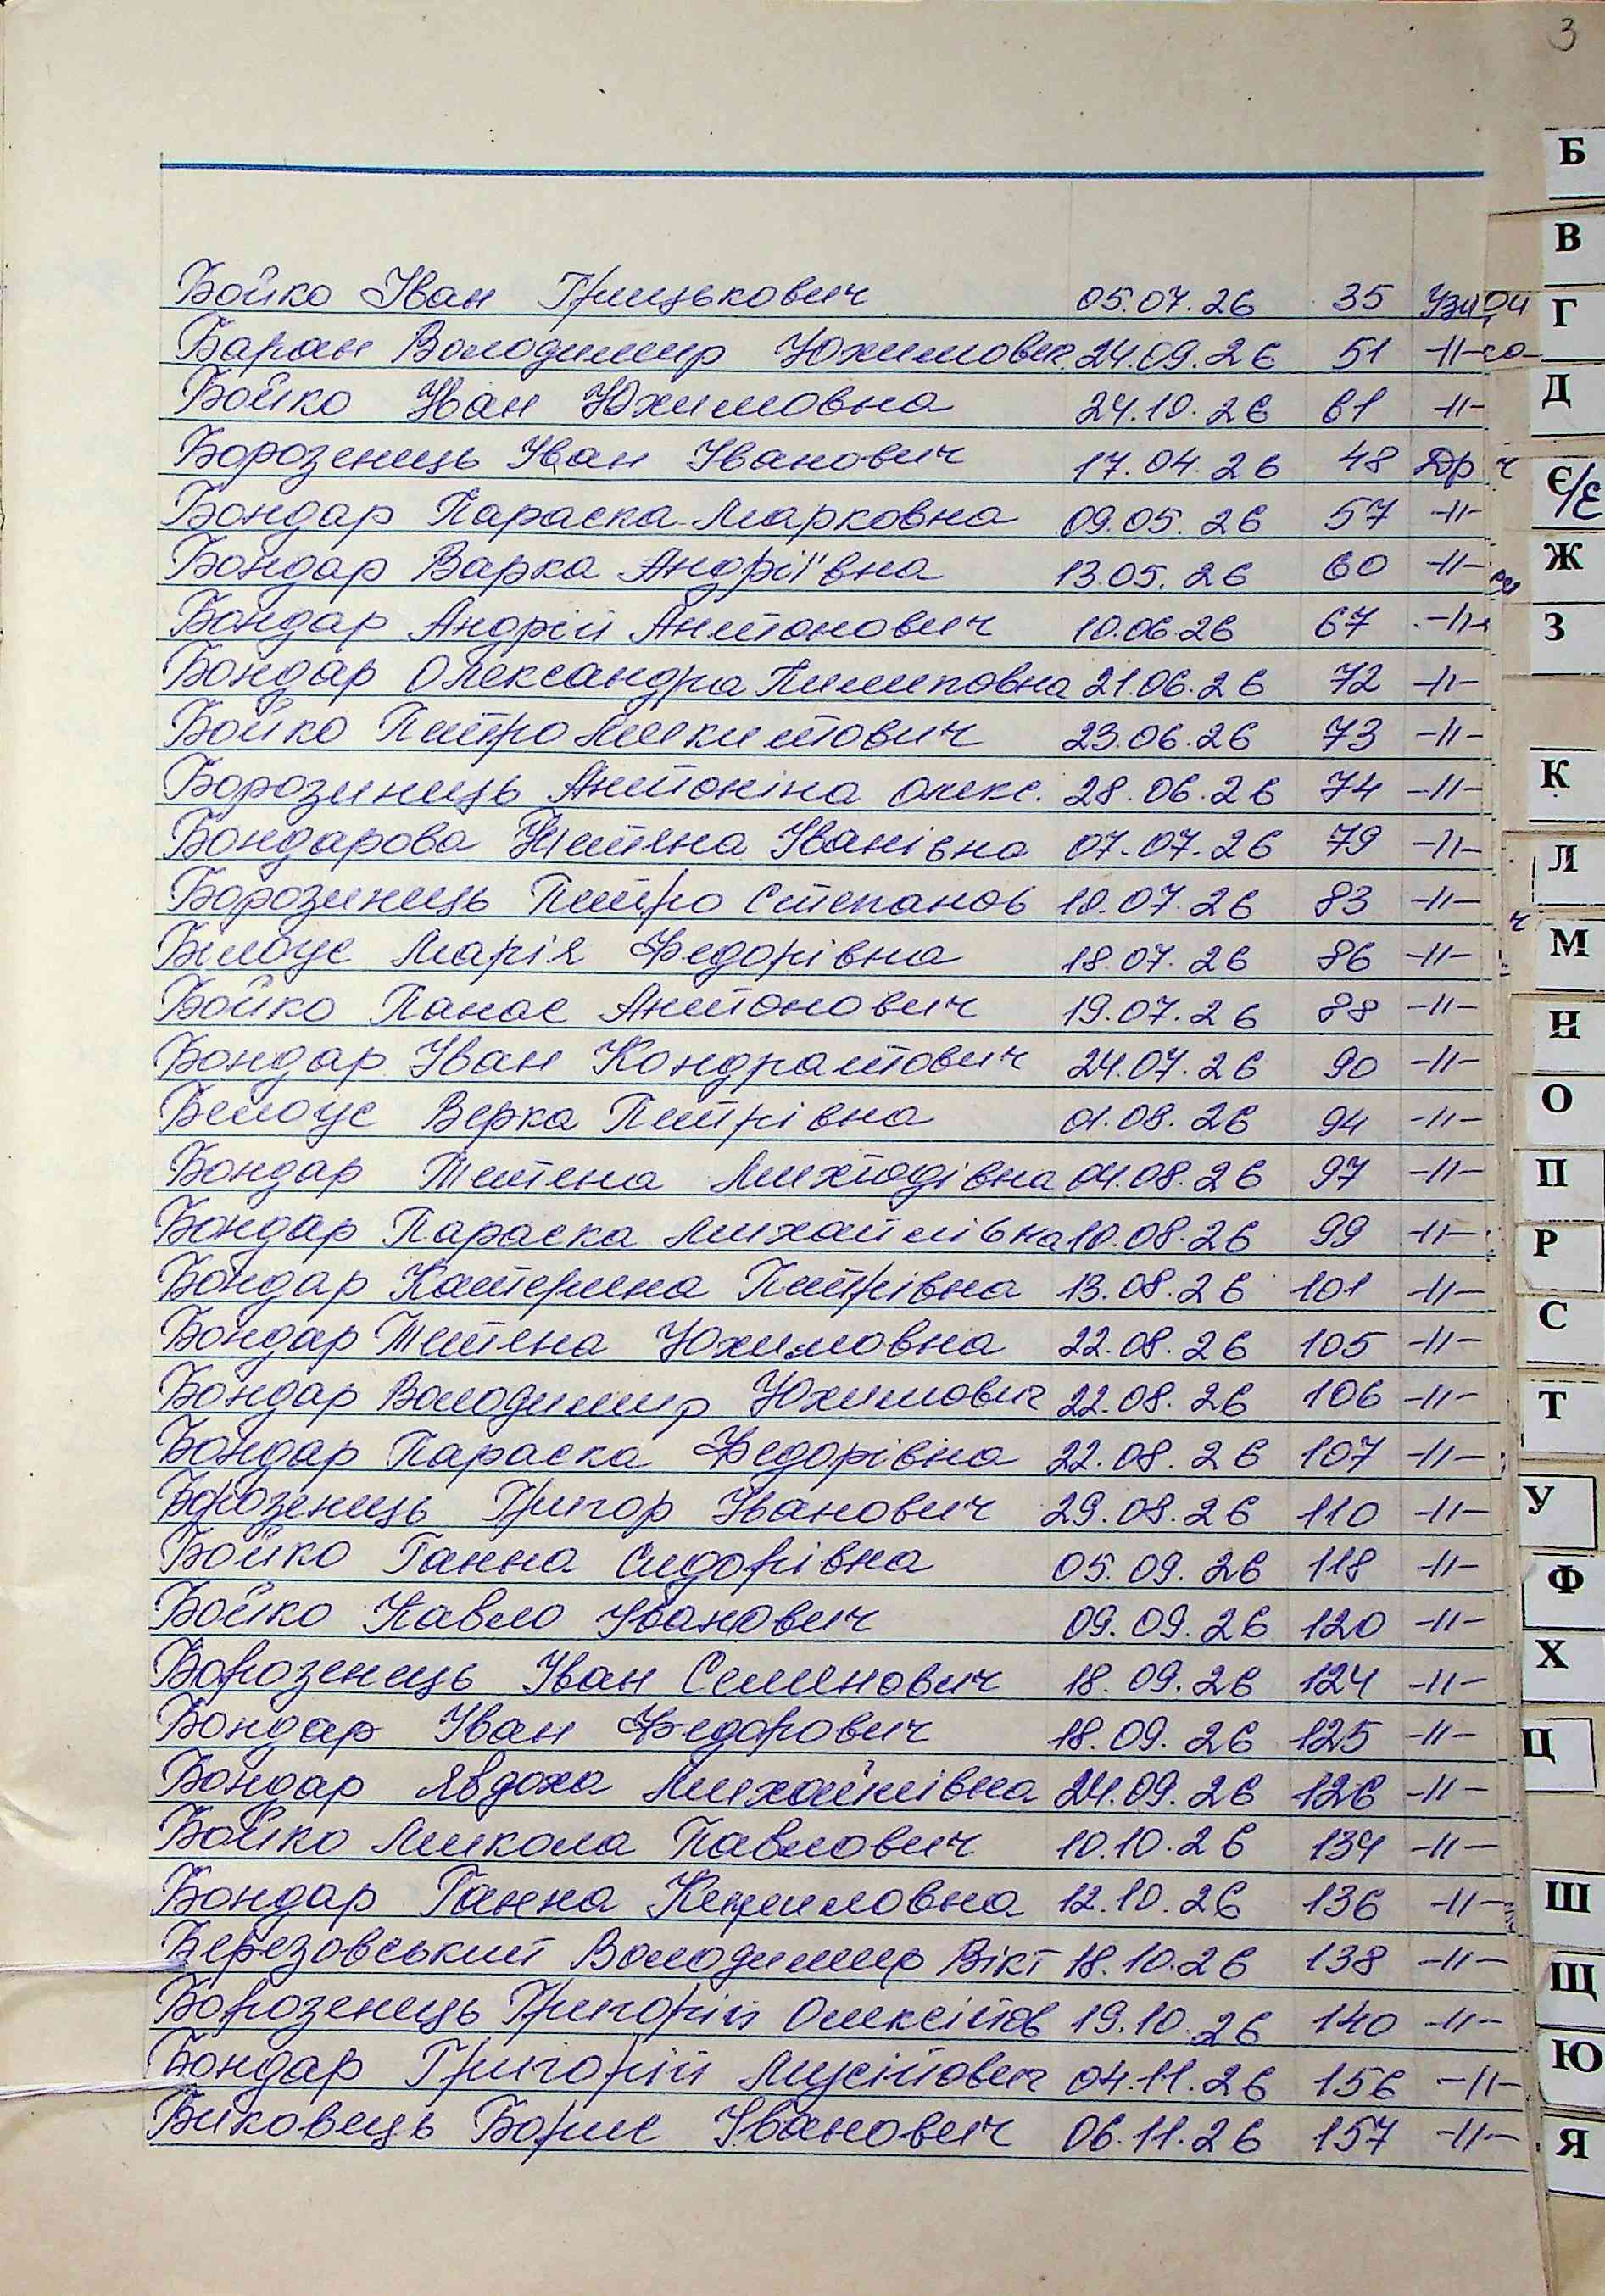 3
Бойко Іван Грицькович 05.07.26 35 Узи
Баран Володимир Юхимович 24.09.26 51 -//-
Бойко Іван Юхимовна 24.10.26 61 -//-
Борозенець Іван Іванович 17.04.26 48 Др
Бондар Параска Марковна 09.05.26 57 -//-
Бондар Варка Андріївна 13.05.26 60 -//-
Бондар Андрій Антонович 10.06.26 67 -//-
Бондар Олександра Пилиповна 21.06.26 72 -//-
Бойко Питро Микитович 23.06.26 73 -//-
Борозинець Антоніна Олекс. 28.06.26 74 -//-
Бондарова Тетяна Іванівна 07.07.26 79 -//-
Борозинець Питро Степанов 10.07.26 83 -//-
Білоус Марія Федорівна 18.07.26 86 -//-
Бойко Панас Антонович 19.07.26 88 -//-
Бондар Іван Кондратович 24.07.26 90 -//-
Белоус Верка Питрівна 01.08.26 94 -//-
Бондар Тетяна 04.08.26 97 -//-
Бондар Параска Михайлівна 10.08.26 99 -//-
Бондар Катерина Питрівна 13.08.26 101 -//-
Бондар Тетяна Юхимовна 22.08.26 105 -//-
Бондар Володимир Юхимович 22.08.26 106 -//-
Бондар Параска Федорівна 22.08.26 107 -//-
Борозенець Григор Іванович 29.08.26 110 -//-
Бойко Ганна Сидорівна 05.09.26 118 -//-
Бойко Павло Іванович 09.09.26 120 -//-
Борозенець Іван Семенович 18.09.26 124 -//-
Бондар Іван Федорович 18.09.26 125 -//-
Бондар Явдоха Михайлівна 24.09.26 126 -//-
Бойко Микола Павлович 10.10.26 134 -//-
Бондар Ганна 12.10.26 136 -//-
Березовський Володимир Вікт 18.10.26 138 -//-
Борозенець Григорій Олексійов 19.10.26 140 -//-
Бондар Григорій Мусійович 04.11.26 156 -//-
Биковець Борис Іванович 06.11.26 157 -//-
Б
В
Г
Д
Є/Е
Ж
З
К
Л
М
Н
О
П
Р
С
Т
У
Ф
Х
Ц
Ш
Щ
Ю
Я